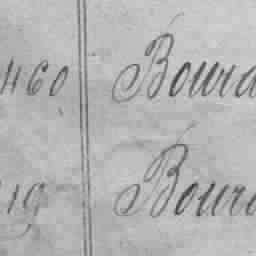 460 Bourd
19 Bourd